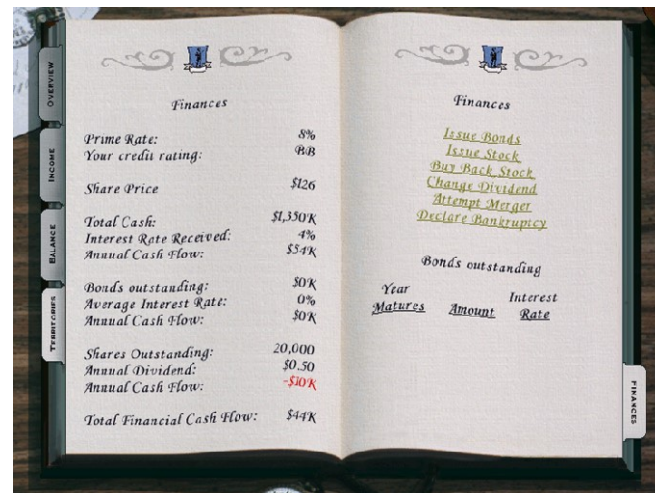 OVERVIEW
INCOME
BALANCE
TERRITORIES
Finances
Prime Rate: 8%
Your credit rating: BB
Share Price $126
Total Cash: $1,350K
Interest Rate Received: 4%
Annual Cash Flow: $54K
Bonds outstanding: $0K
Average Interest Rate: 0%
Annual Cash Flow: $0K
Shares Outstanding: 20,000
Annual Dividend: $0.50
Annual Cash Flow: -$10K
Total Financial Cash Flow: $44K
Finances
Issue Bonds
Issue Stock
Buy Back Stock
Change Dividend
Attempt Merger
Declare Bankruptcy
Bonds outstanding
Year Interest
Matures Amount Rate
FINANCES